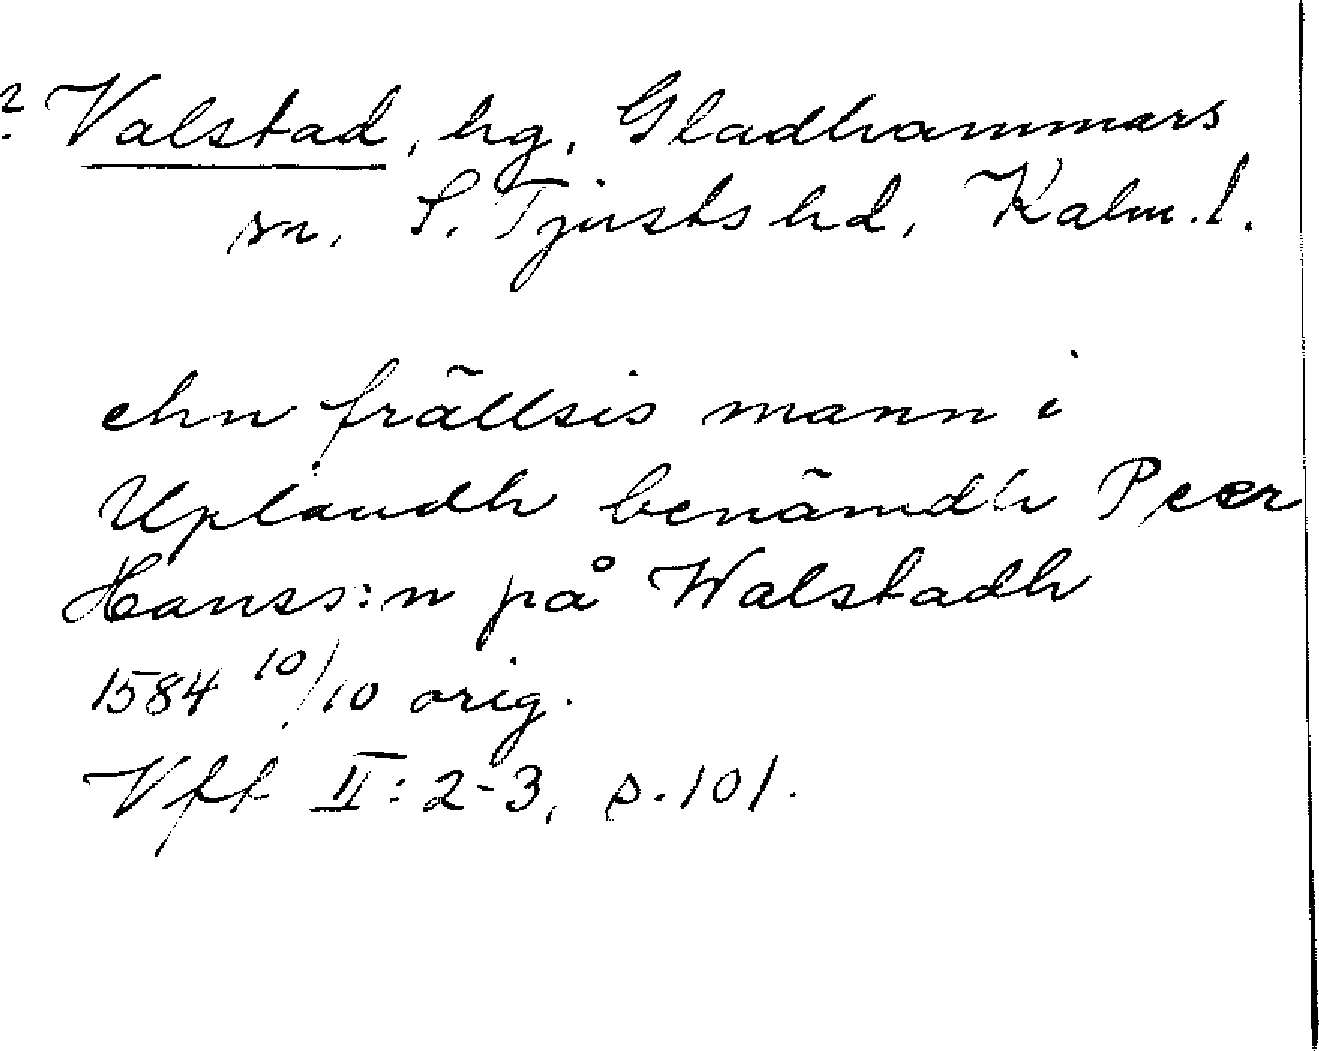 ? Valstad, hg, Gladhammars
sn, S. Tjusts hd, Kalm. l.
ehn frällsis mann i
Uplandh benämdh Peer
Hanss:n på Walstadh
1584 10/10 orig.
Vff II: 2-3, s. 101.